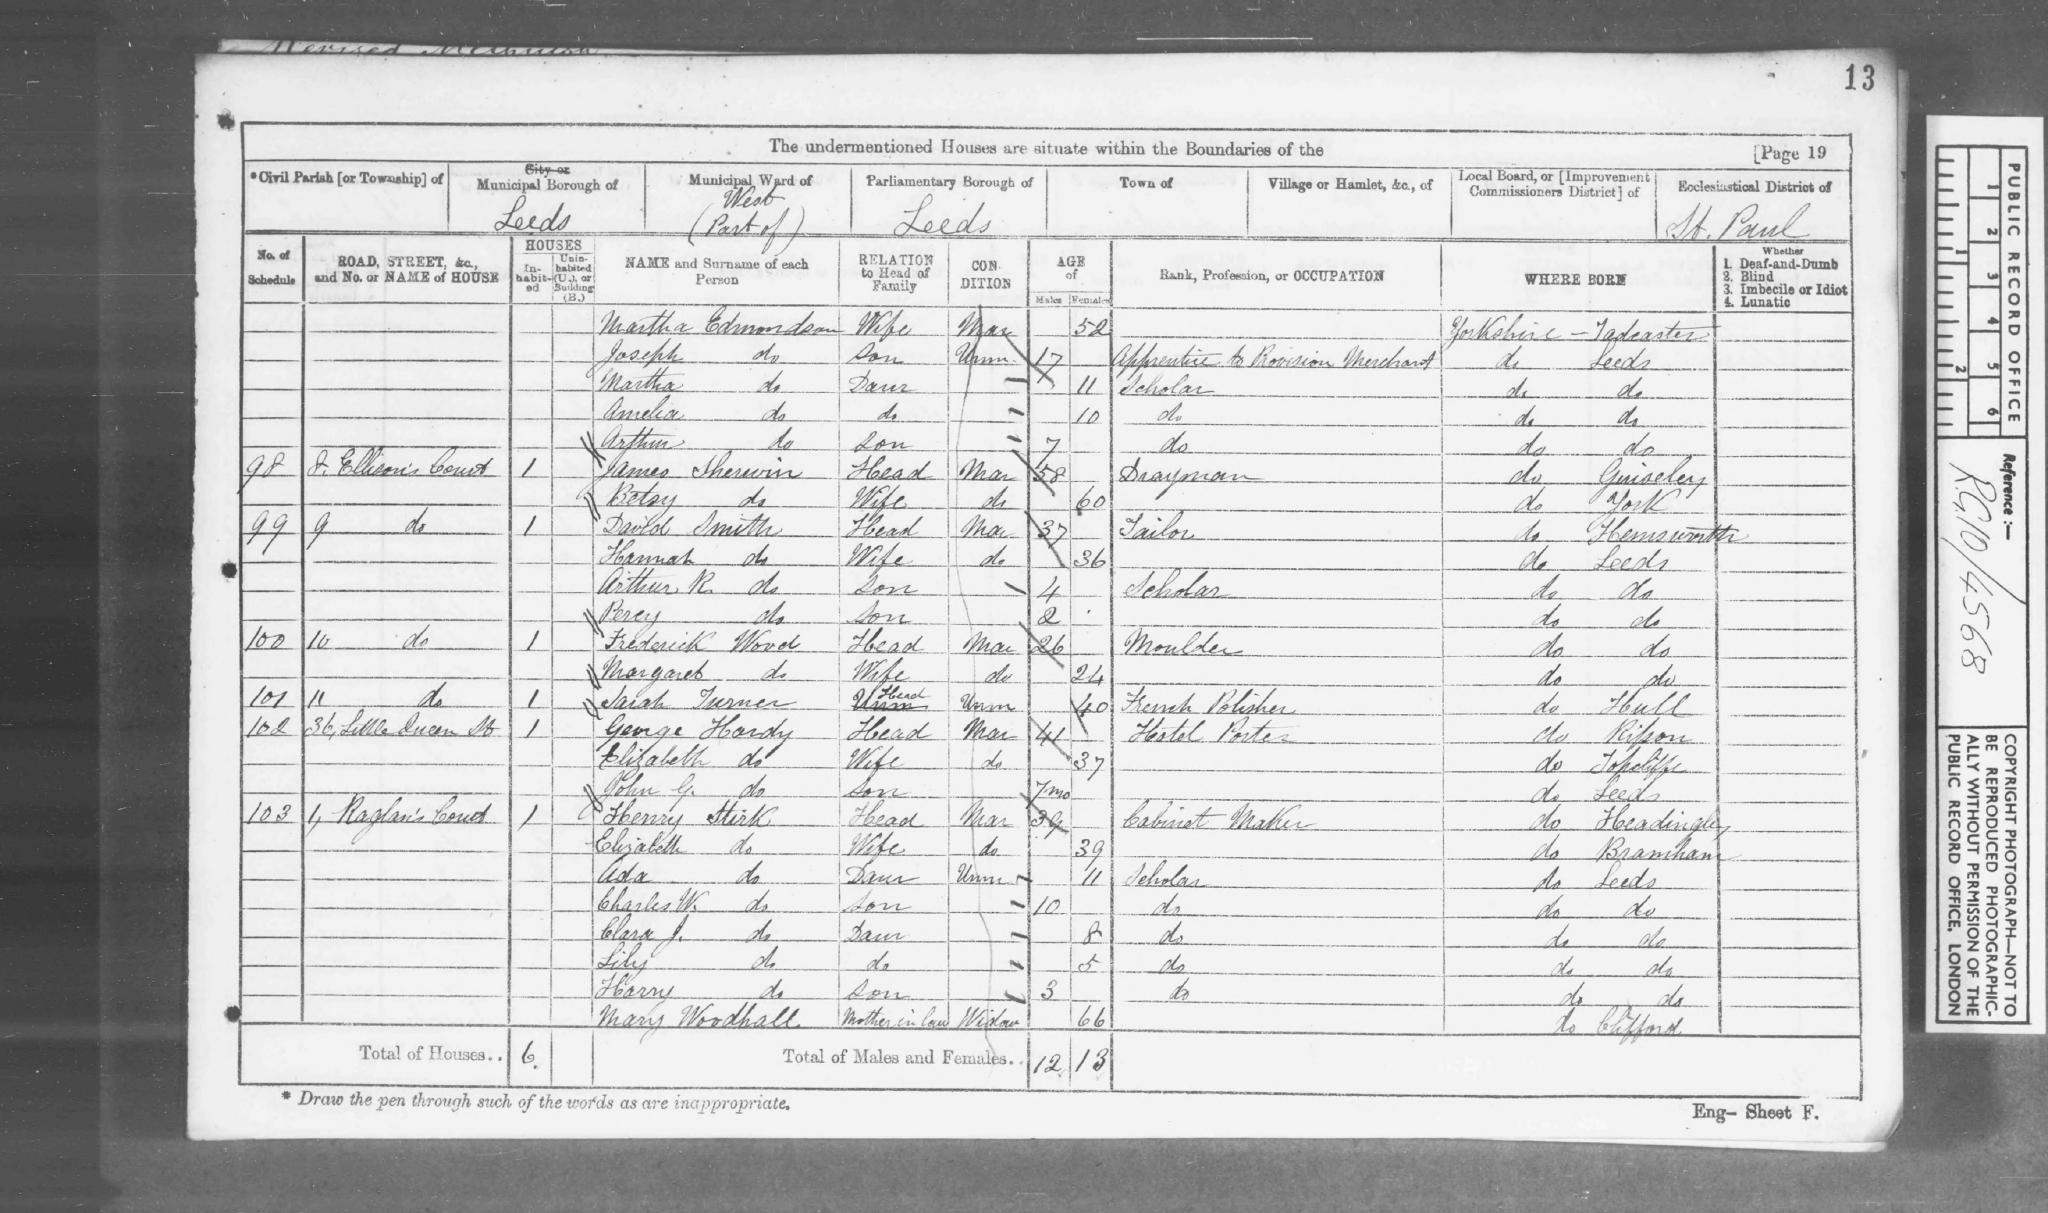 13
The undermentioned Houses are situate within the Boundaries of the [Page 19
*Civil Parish [or Township] of
City or Municipal Borough of Leeds
Municipal Ward of West (Part of)
Parliamentary Borough of Leeds
Town of
Village or Hamlet, &c., of
Local Board, or [Improvement Commissioners District] of
Ecclesiastical District of St. Paul
No. of Schedule
ROAD, STREET, &c., and No. or NAME of HOUSE
HOUSES
Inhabited
Uninhabited (U.), or Building (B.)
NAME and Surname of each Person
RELATION to Head of Family
CONDITION
AGE of
Males Females
Rank, Profession, or OCCUPATION
WHERE BORN
Whether
1. Deaf-and-Dumb
2. Blind
3. Imbecile or Idiot
4. Lunatic
Martha Edmondson Wife Mar 52 Yorkshire - Tadcaster
Joseph do Son Unm. 17 Apprentice to Provision Merchant do Leeds
Martha do Daur 11 Scholar do do
Amelia do do 10 do do do
Arthur do Son 7 do do do
98 8, Ellison's Court 1 James Sherwin Head Mar 58 Drayman do Guiseley
Betsy do Wife do 60 do York
99 9 do 1 David Smith Head Mar 37 Tailor do Hemsworth
Hannah do Wife do 36 do Leeds
Arthur R. do Son 4 Scholar do do
Percy do Son 2 do do
100 10 do 1 Frederick Wood Head Mar 26 Moulder do do
Margaret do Wife do 24 do do
101 11 do 1 Sarah Turner Unm Head Unm 40 French Polisher do Hull
102 36, Little Queen St 1 George Hardy Head Mar 41 Hotel Porter do Ripon
Elizabeth do Wife do 37 do Topcliffe
John G. do Son 7mo do Leeds
103 1, Raglan's Court 1 Henry Stirk Head Mar 39 Cabinet Maker do Headingley
Elizabeth do Wife do 39 do Bramham
Ada do Daur Unm 11 Scholar do Leeds
Charles W. do Son 10 do do do
Clara J. do Daur 8 do do do
Lily do do 5 do do do
Harry do Son 3 do do do
Mary Woodhall Mother in law Widow 66 do Clifford
Total of Houses.. 6 Total of Males and Females.. 12 13
* Draw the pen through such of the words as are inappropriate.
Eng- Sheet F.
PUBLIC RECORD OFFICE
1 2 3 4 5 6
1 2
Reference:-
RG10/4568
COPYRIGHT PHOTOGRAPH—NOT TO
BE REPRODUCED PHOTOGRAPHIC-
ALLY WITHOUT PERMISSION OF THE
PUBLIC RECORD OFFICE, LONDON